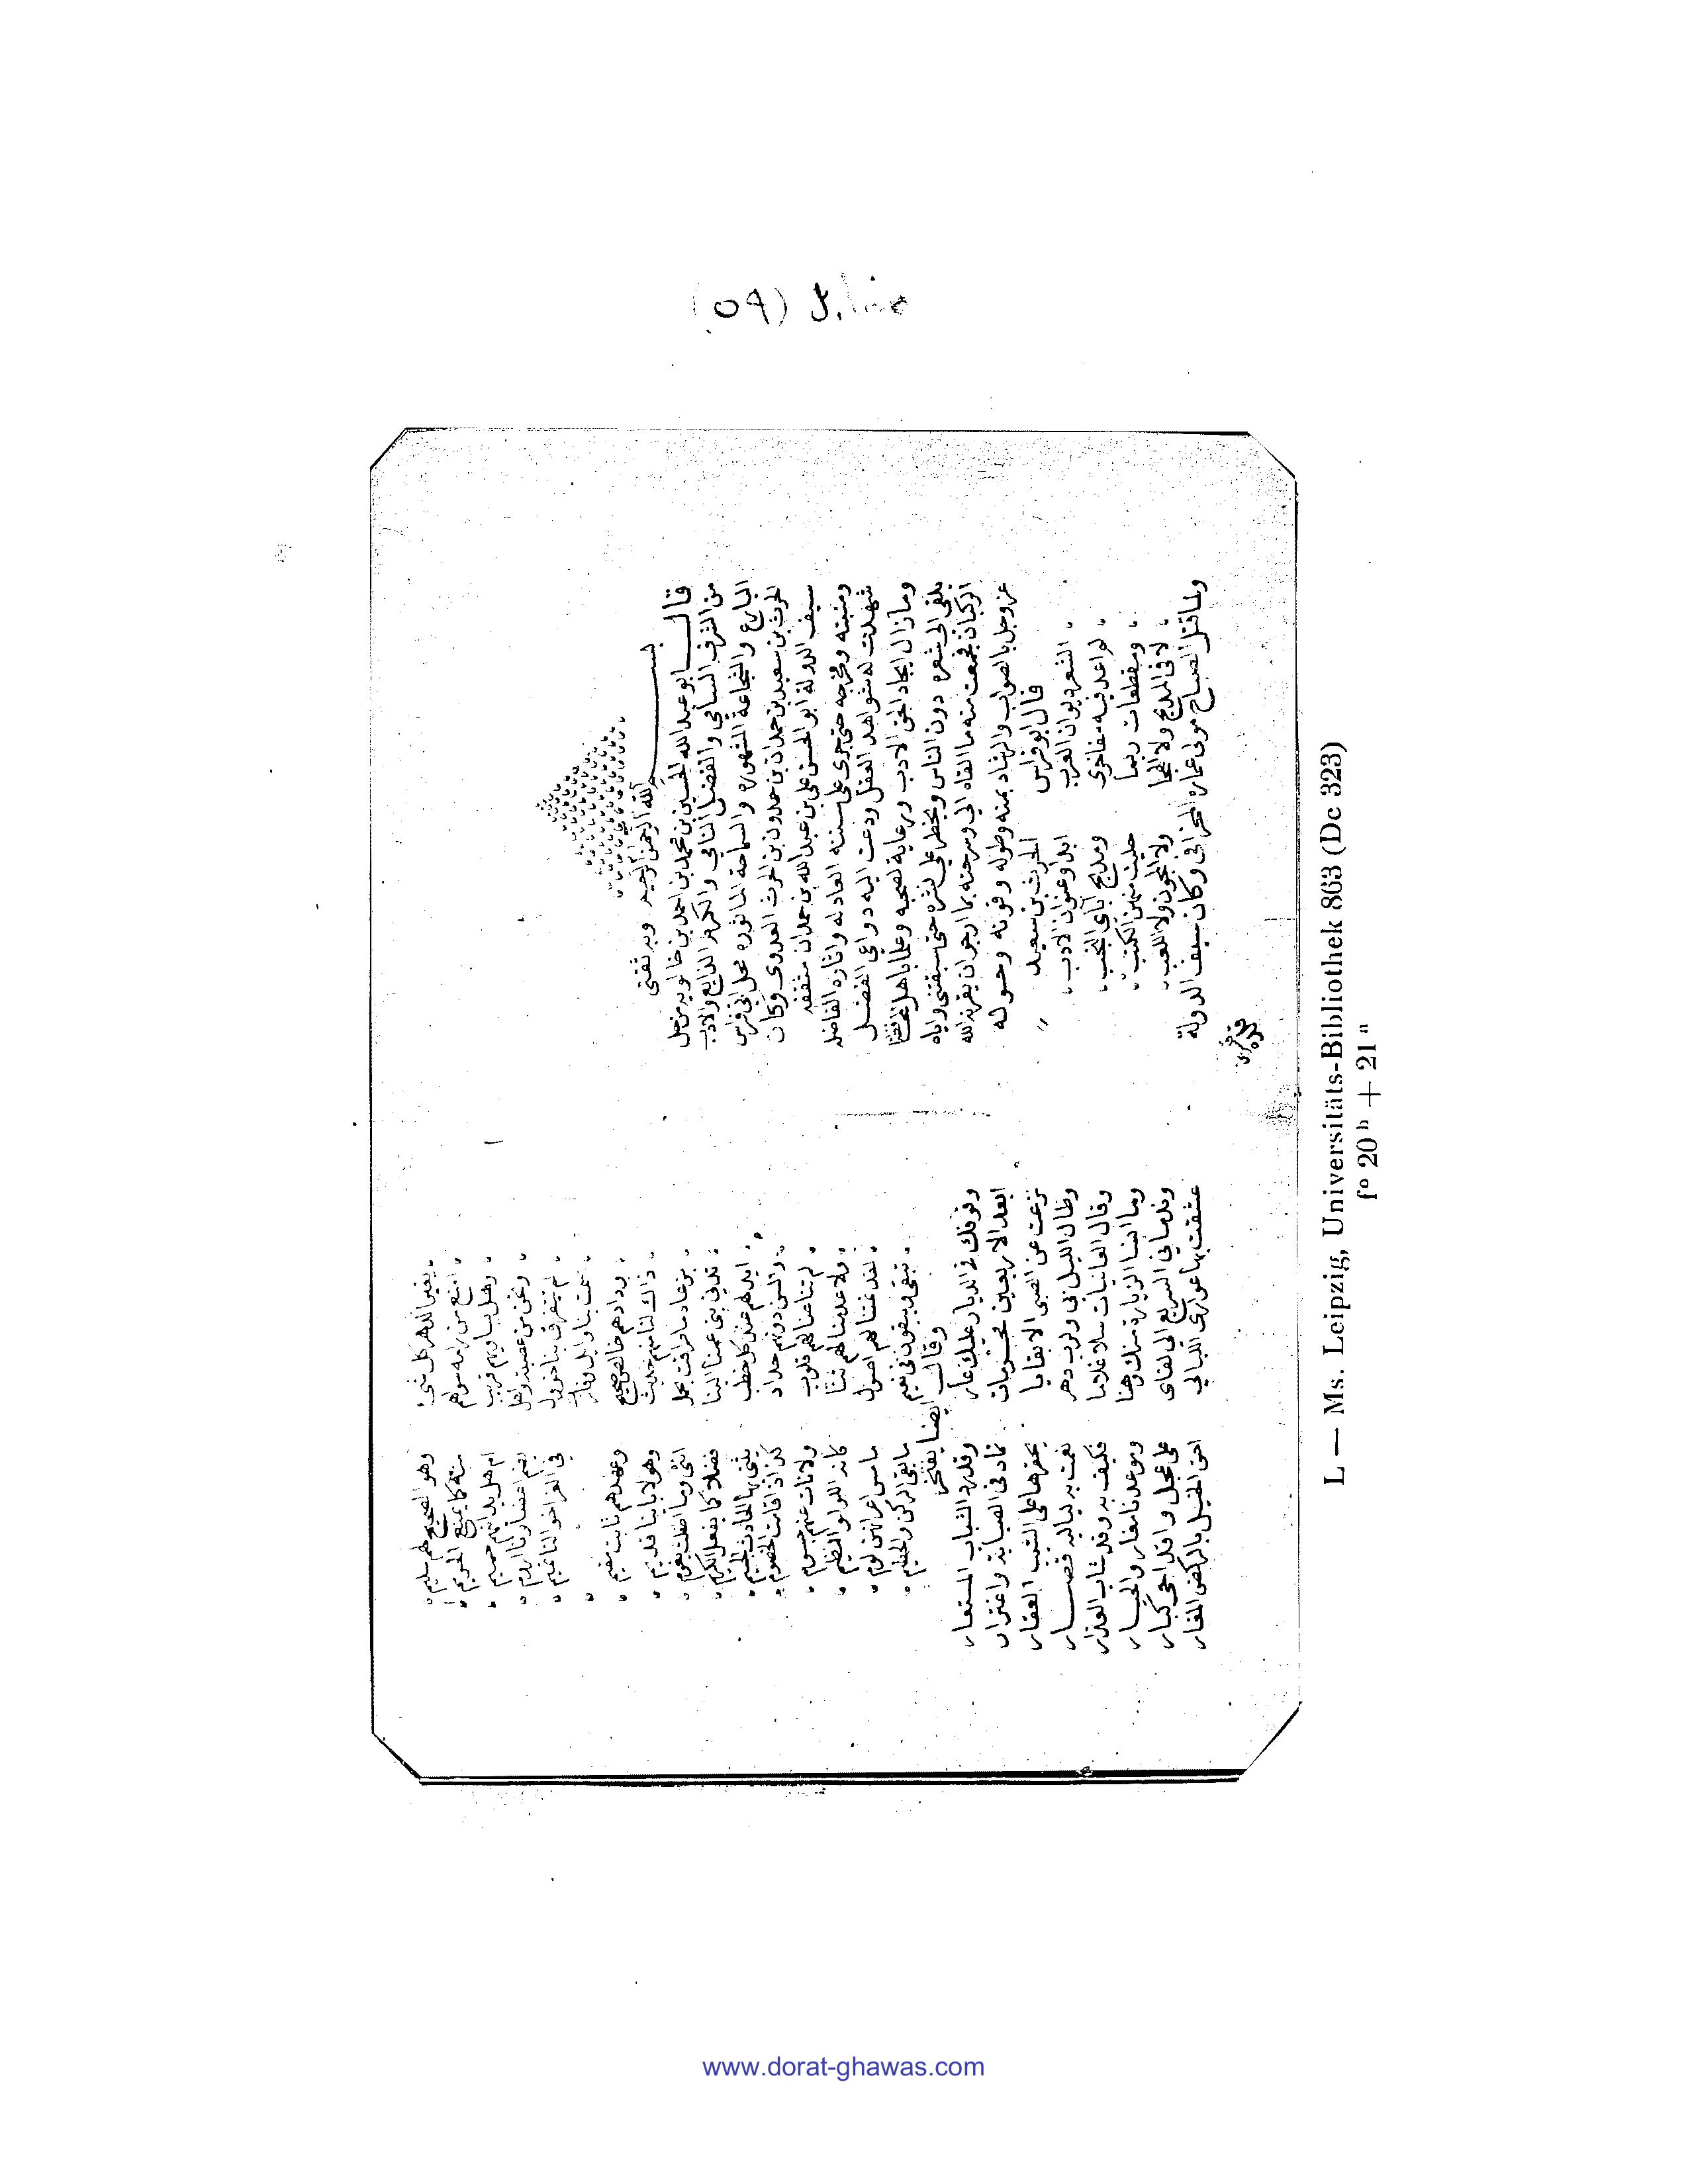 بسم الله الرحمن الرحيم وبه ثقتي
قال ابو عبد الله الحسين بن محمد بن احمد بن خالويه من حل
من الشرف السامي والفضل النامي والكرم الذايع والادب
البارع والشجاعة المشهوره والسماحة الماثوره محل ابي فراس
الحرث بن سعيد بن حمدان بن حمدون بن الحرث العدوي وكان
سيف الدولة ابو الحسن علي بن عبد الله بن حمدان مثقفه
ومنبته ومخرجه حتى جرى على سننه العادله واثاره الفاضله
شهدت له شواهد العقل ودعت اليه دواعي الفضل
وما زال ايجاد الحق الادب ورعاية لصحبه وعلما باهل
يلقي الي شعره دون الناس ويحظر علي نشره حتى سبقتني واياه
الركبان فجمعت منه ما القاه الي وشرحته بما ارجو ان يقربه الله
عز وجل بالصواب والرشاد بمنه وطوله وقوته وحوله
قال ابو فراس الحرث بن سعيد
الشعر ديوان العرب ابدا وعنوان الادب
لم اعد فيه مفاخري ومديح آباي النجب
ومقطعات ربما حليت منهن الكتب
لا في المديح ولا الهجا ولا المجون ولا اللعب
ولما قتل الصباح مولى عمارة الحرفي وكان سيف الدولة
يغير الدهر كل شي وهو الصحيح لهم سليم
امنع من رامه سواهم منه كما يمنع الحريم
وهل يساويهم قريب ام هل يدانيهم حميم
ونحن من عصبة واهل تضم اغصاننا اروم
لم يتفرق بنا خوول في العز اخوالنا تميم
سمت بنا وايل وفازت
ودادهم خالص صحيح وعهدهم ثابت مقيم
ذاك لنا منهم حديث وهو لآباينا قديم
ندني بني عمنا الينا فضلا كما يفعل الكريم
ايد لهم عند كل خطب يثنى بها الحادث الجسيم
والسن دونهم حداد لد اذا قامت الخصوم
لم تنا عنا لهم قلوب ولا نات عنهم جسوم
ولا عدمنا لهم ثنا كانه اللولو النظيم
لقد نمتنا لهم اصول ما مس اعراقهن لوم
تبقى ويبقون في نعيم ما بقي الركن والحطيم
وقال ايضا يفتخر
وقوفك في الديار عليك عار وقد رد الشباب المستعار
ابعد الاربعين محرمات تماد في الصبابة واغترار
نزعت عن الصبى الا بقايا يحفزها على الشيب العقار
وطال الليل بي ولرب دهر نعمت به لياليه قصار
وقال الغانيات سلا غلاما فكيف به وقد شاب العذار
وما انسا الزيارة منك وهنا وموعدنا معان والحيار
عشقت بها عواري الليالي احق الخيل بالركض المعار
L — Ms. Leipzig, Universitäts-Bibliothek 863 (Dc 323)
fº 20 b + 21 a
www.dorat-ghawas.com